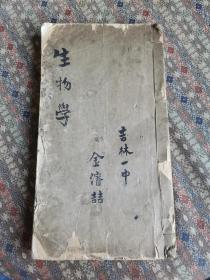 生物學
吉林一中
金濬喆